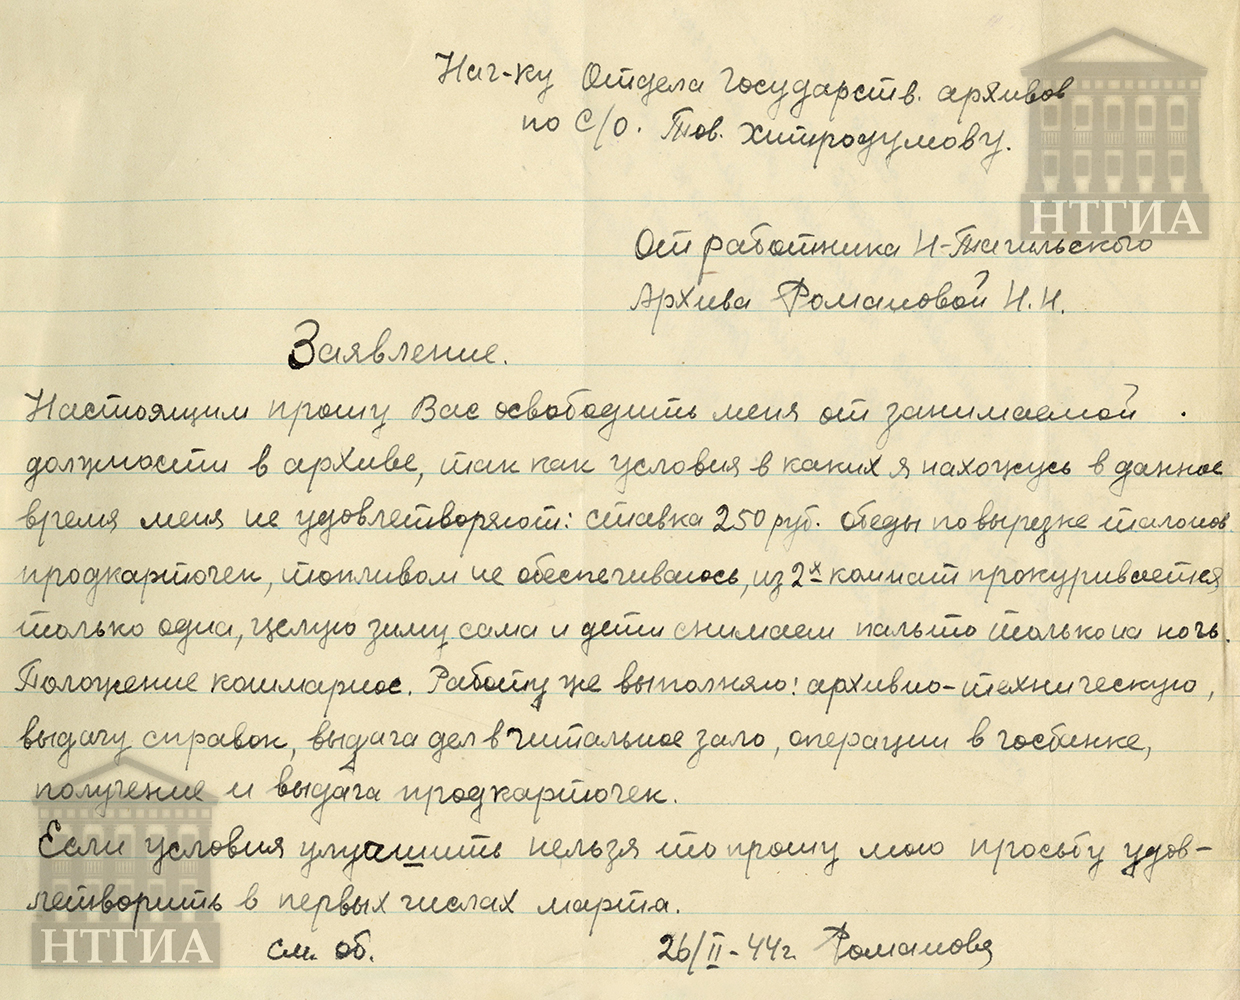 Нач-ку Отдела Государств. архивов
по С/О. Тов. Хитродумову.
НТГИА
От работника Н-Тагильского
Архива Романовой Н.Н.
Заявление.
Настоящим прошу Вас освободить меня от занимаемой
должности в архиве, так как условия в каких я нахожусь в данное
время меня не удовлетворяют: ставка 250 руб. обеды по вырезке талонов
продкарточек, топливом не обеспечиваюсь, из 2х комнат прокуривается
только одна, целую зиму сама и дети снимаем пальто только на ночь.
Положение кошмарное. Работу же выполняю: архивно-техническую,
выдачу справок, выдача дел в читальное зало, операции в госбанке,
получение и выдача продкарточек.
Если условия улучшить нельзя то прошу мою просьбу удов-
летворить в первых числах марта.
НТГИА
см. об. 26/II-44г. Романова